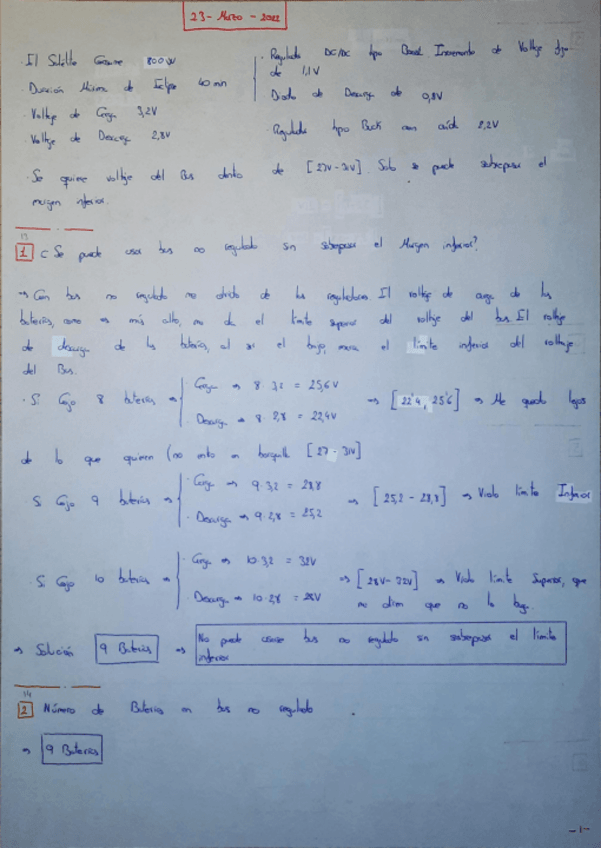 23 - Marzo - 2022
· El Satélite Consume 800W
· Duración Máxima de Eclipse 40 min
· Voltaje de Carga 3,2V
Voltaje de Descarga 2,8V
· Regulador DC/DC tipo Boost Incremento de Voltaje
de 1,1V
Diodo de Descarga de 0,8V
Regulador tipo Buck con caída 2,2V
· Se quiere voltaje del Bus dentro de [27V-31V]. Solo se puede sobrepasar el
margen inferior.
13
1 ¿Se puede usar bus no regulado sin sobrepasar el Margen inferior?
→ Con bus no regulado me olvido de los reguladores El voltaje de carga de las
baterías, como es más alto, me da el límite superior del voltaje del bus El voltaje
de descarga de las baterías, al ser el bajo, marca el límite inferior del voltaje
del Bus.
· Si Cojo 8 baterías → Carga → 8 · 3,2 = 25,6V
Descarga → 8 · 2,8 = 22,4V
→ [22'4, 25'6] → Me quedo lejos
de lo que quieren (no entro en horquilla [27-31V]
Si Cojo 9 baterías → · Carga → 9·3,2 = 28,8
· Descarga → 9·2,8 = 25,2
→ [25,2 - 28,8] → Violo límite Inferior
· Si Cojo 10 baterías → · Carga → 10·3,2 = 32V
· Descarga → 10·2,8 = 28V
→ [28V-32V] → Violo límite Superior, que
me dicen que no lo haga.
→ Solución 9 Baterías → No puede usarse bus no regulado sin sobrepasar el límite
inferior
14
2 Número de Baterías en bus no regulado.
→ 9 Baterías
-1-